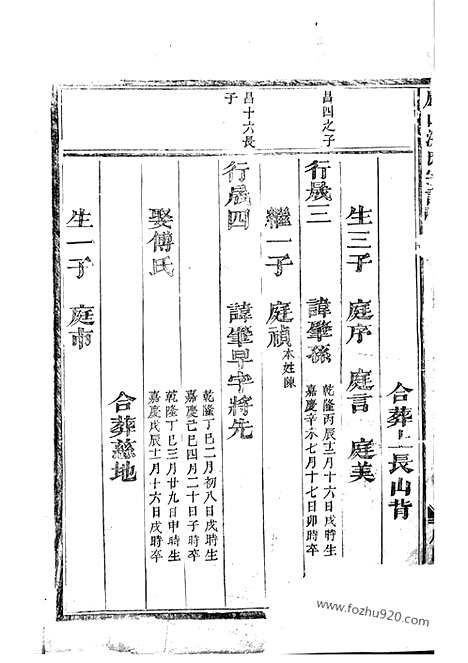 合葬上長山背
生三子 庭序 庭言 庭美
昌四之子
行晟三 諱肇孫 乾隆丙辰十二月十六日戌時生
嘉慶辛未七月十七日卯時卒
繼一子 庭禎 本姓陳
昌十六長子
行晟四 諱肇早字將先 乾隆丁巳二月初八日戌時生
嘉慶己巳四月二十日子時卒
娶傅氏 乾隆丁巳三月廿九日申時生
嘉慶戊辰十二月十六日戌時卒
合葬慈地
生一子 庭市
www.fozhu920.com